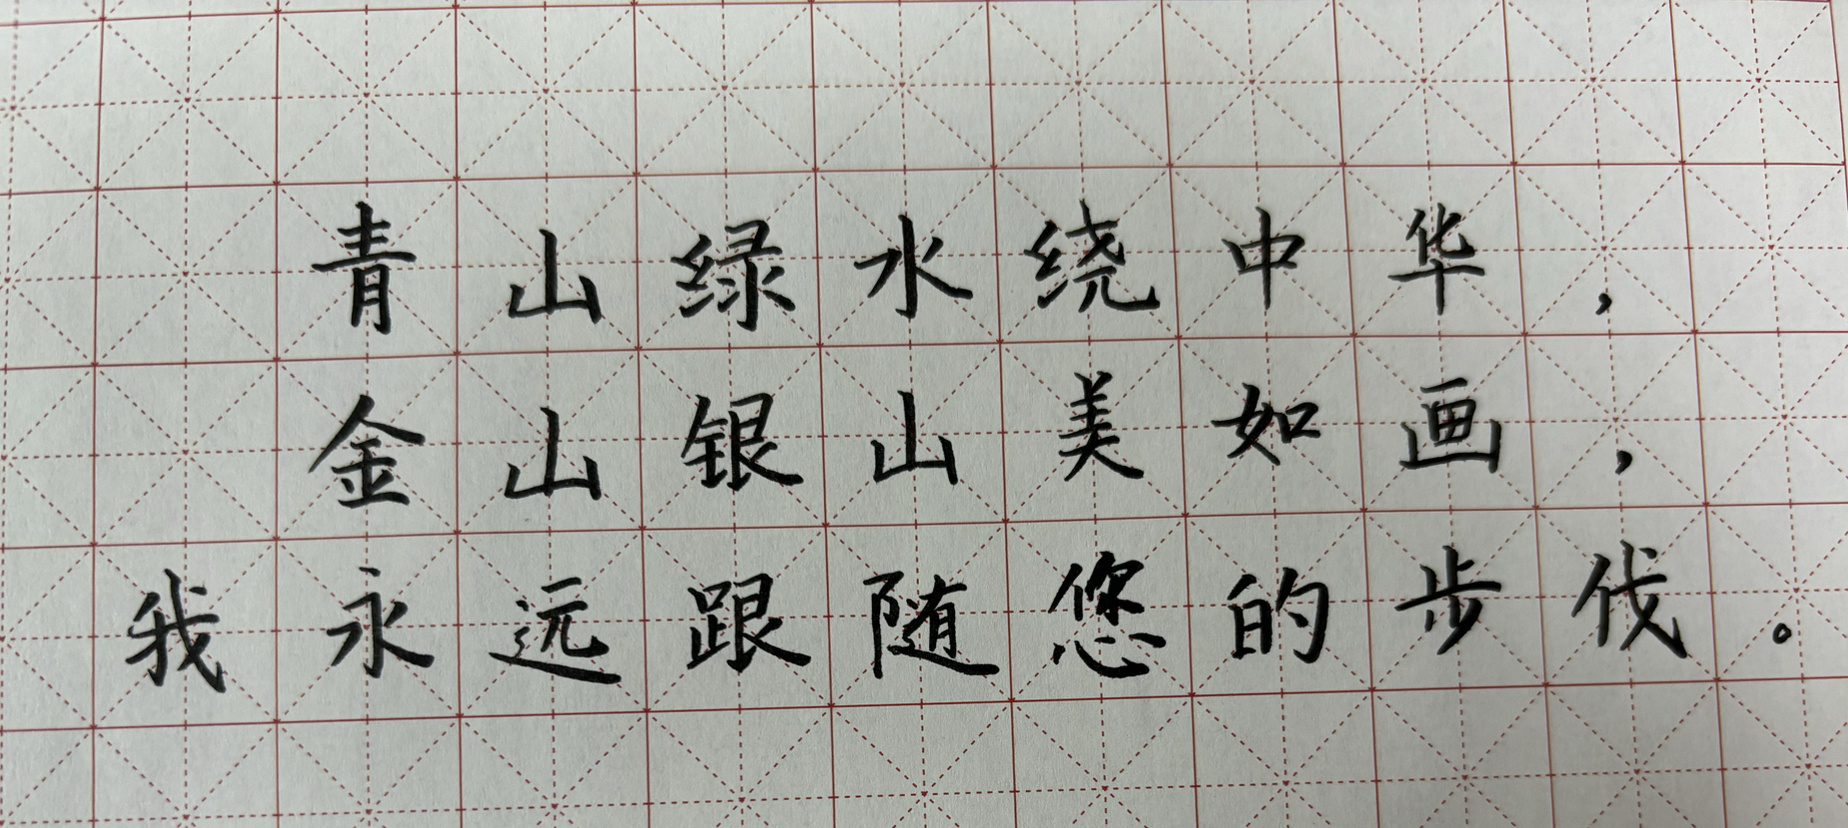 青山绿水绕中华，
金山银山美如画，
我永远跟随您的步伐。